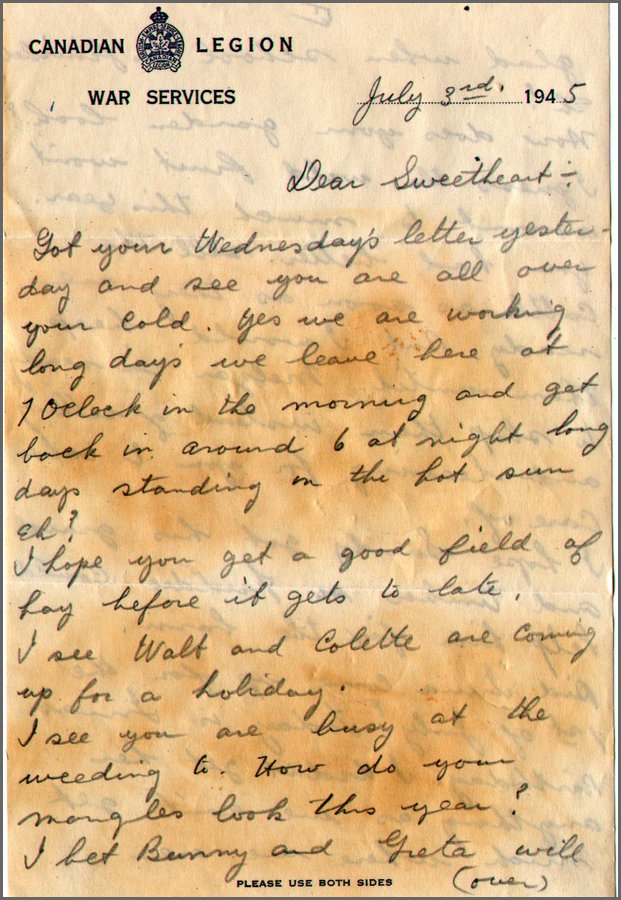 CANADIAN LEGION
WAR SERVICES
July 3rd. 1945
Dear Sweetheart:-
Got your Wednesday's letter yester-
day and see you are all over
your cold. Yes we are working
long days we leave here at
7 Oclock in the morning and get
back in around 6 at night long
days standing in the hot sun
eh?
I hope you get a good field of
hay before it gets to late.
I see Walt and Colette are coming
up for a holiday.
I see you are busy at the
weeding to. How do your
mangles look this year?
I bet Bunny and Greta will
(over)
PLEASE USE BOTH SIDES